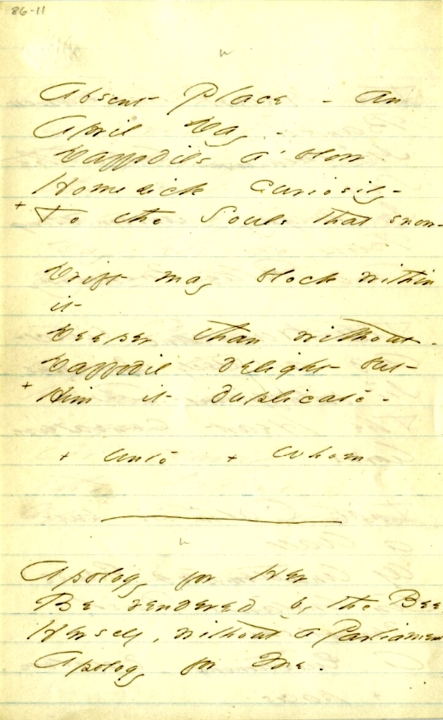 86-11
Absent Place - an
April Day -
Daffodils a'blow
Homesick Curiosity -
+ To the Souls that snow -
Drift may block within
it
Deeper than without -
Daffodil delight but
+ Him it duplicate -
+ unto + Whom
Apology for Her
Be rendered by the Bee
Herself, without a Parliament
Apology for Me.